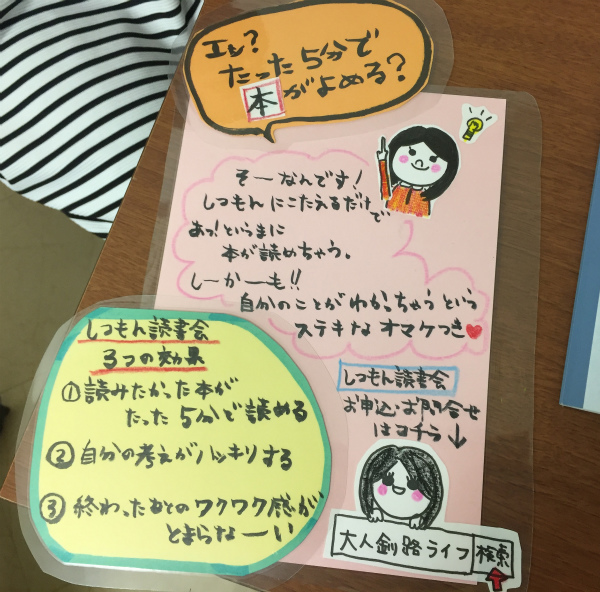 エッ?
たった5分で
本がよめる?
そーなんです!
しつもんにこたえるだけで
あっ!というまに
本が読めちゃう。
しーかーも!!
自分のことがわかっちゃうという
ステキなオマケつき♥
しつもん読書会
3つの効果
①読みたかった本が
たった5分で読める
②自分の考えがハッキリする
③終わったあとのワクワク感が
とまらなーい
しつもん読書会
お申込・お問合せ
はコチラ↓
大人釧路ライフ 検索